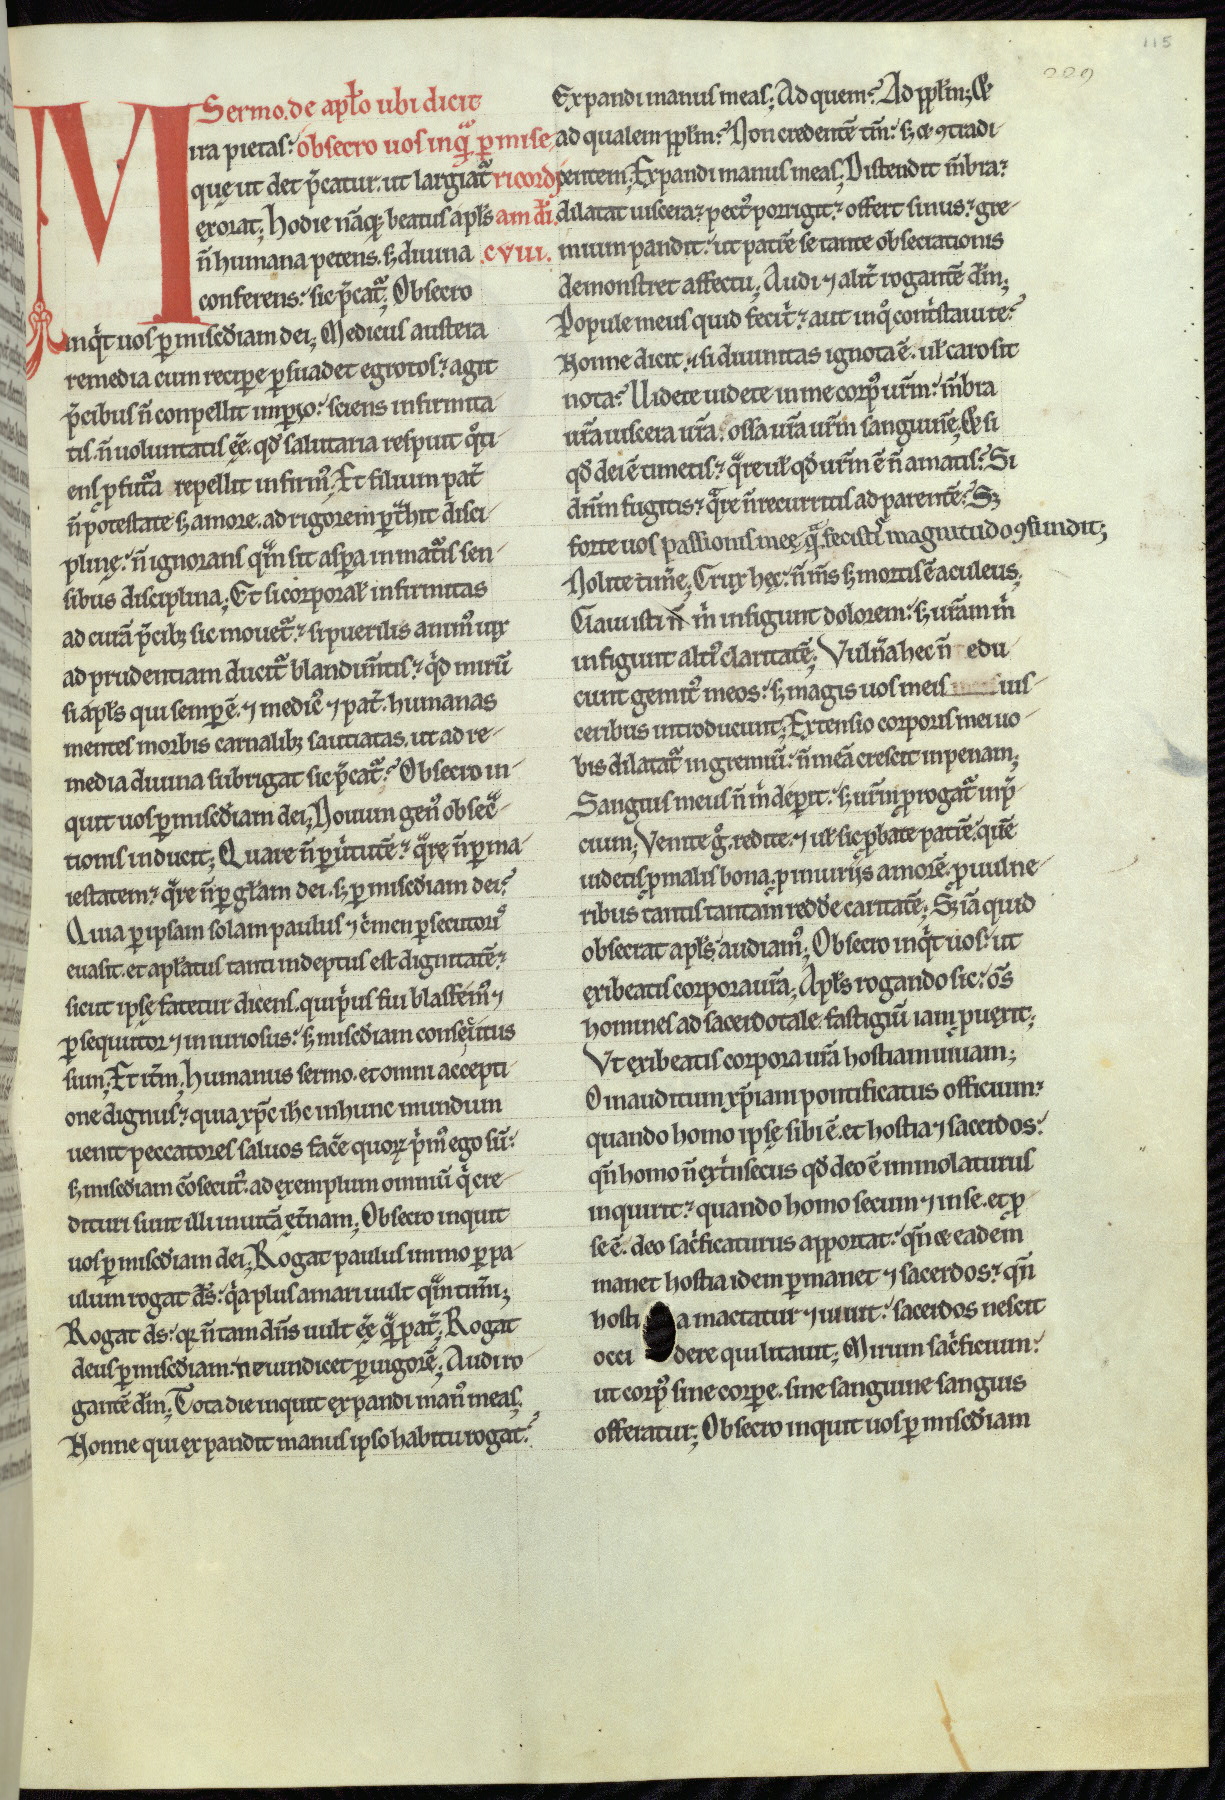 115
229
Sermo. de apło ubi dicit
MIra pietas: obsecro uos inq̄ꝫ ꝑ mise
que ut det p̄catur. ut largiat᷑ ricordi
exorat; hodie nāqꝫ beatus apłs am dī.
n̄ humana petens. sꝫ diuina .cviii.
conferens: sic p̄cat᷑; Obsecro
inqͥt uos ꝑ misc̄diam dei; Medicus austera
remedia cum recipe ꝑsuadet egrotos: agit
p̄cibus n̄ conpellit imperio: sciens infirmita
tis. n̄ uoluntatis eē. qd̄ salutaria respuit qͦti
ens ꝓfutura repellit infirmꝰ. Et filium pat̄
n̄ potestate sꝫ amore. ad rigorem ꝑthͣit disci
pline: n̄ ignorans qͣm sit aspa inmat᷑is sen
sibus disciplina; Et si corporał infirmitas
ad curā p̄cibꝫ sic mouet᷑: si puerilis animꝰ uix
ad prudentiam ducit᷑ blandim̄tis: qͥd mirū
si apłs qui semꝑ ē. ⁊ medicꝰ ⁊ pat̄. humanas
mentes morbis carnalibꝫ sautiatas. ut ad re
media diuina subrigat sic p̄cat᷑: Obsecro in
quit uos ꝑ misc̄diam dei; Nouum genꝰ obsec̄
tionis inducit; Quare n̄ ꝑ uͥrtutē: qͣre n̄ ꝑ ma
iestatem: qͣre n̄ ꝑ głam dei. sꝫ ꝑ misc̄diam dei:
Quia ꝑ ipsam solam paulus ⁊ cͥmen ꝑsecutorꝭ
euasit. et apłatus tanti indeptus est dignitatē:
sicut ipse fatetur dicens. qui pͥus fui blasfemꝰ ⁊
ꝑsequutor ⁊ iniuriosus: sꝫ misc̄diam conseqͥutus
sum; Et itm̄; Humanus sermo. et omni accepti
one dignus: quia xp̄c ihc in hunc mundum
uenit peccatores saluos fac̄e quorꝫ pͥmꝰ ego sū:
sꝫ misc̄diam cōsecutꝰ. ad exemplum omniū qͥ cre
dituri sunt illi in uitā et̄nam; Obsecro inquit
uos ꝑ misc̄diam dei; Rogat paulus immo ꝑ pa
ulum rogat d̄s: qͥa plus amari uult qͣm tim̄;
Rogat d̄s: qꝛ n̄ tam dn̄s uult eē qͣꝫ pat̄; Rogat
deus ꝑ misc̄diam. ne uindicet ꝑ uigorē; Audi ro
gantē dīn; Tota die inquit expandi manꝰ meas;
Nonne qui expandit manus ipso habitu rogat:
Expandi manus meas; Ad quem: Ad ppłm; Et
ad qualem ppłm: Non credentē tm̄: sꝫ et ꝯtradi
centem; Expandi manus meas; Distendit m̄bra:
dilatat uiscera: pectꝰ porrigit: offert sinus: gre
mium pandit: ut patrē se tante obsecrationis
demonstret affectu; Audi ⁊ alit̄ rogantē dīm;
Popule meus quid feci tͥ: aut in qͦ contͥstaui te:
Nonne dicit. ⁊ si diuinitas ignota ē. uł caro sit
nota: Uidete uidete in me corpꝰ ur̄m: m̄bra
ur̄a uiscera ur̄a. ossa ur̄a ur̄m sanguinē; Et si
qd̄ dei ē timetis: qͣre uł qd̄ ur̄m ē n̄ amatis: Si
dn̄m fugitis: qͣre n̄ recurritis ad parentē: Sꝫ
forte uos passionis mee qͣ fecistis magnitudo ꝯfundit;
Nolite tim̄e; Crux hec: n̄ m̄s sꝫ mortis ē aculeus;
Claui isti n̄ mͥ infigunt dolorem: sꝫ ur̄am mͥ
infigunt altiꝰ claritatē; Vuln̄a hec n̄ edu
cunt gemitꝰ meos: sꝫ magis uos meis uis
ceribus introducunt; Extensio corporis mei uo
bis dilatat᷑ in gremiū: n̄ meā crescit in penam;
Sanguis meus n̄ mͥ deꝑit: sꝫ ur̄m ꝓrogat᷑ in p̄
cium; Venite gͦ. redite. ⁊ uł sic ꝓbate patrē. quē
uidetis ꝓ malis bona. ꝓ iniurijs amorē. ꝓ uulne
ribus tantis tantam redde caritatē; Sꝫ iā quid
obsecrat apłs audiamꝰ; Obsecro inqͥt uos: ut
exibeatis corpora ur̄a; Apłs rogando sic: om̄s
homines ad sacerdotale fastigiū iam ꝓuexit;
Vt exibeatis corpora ur̄a hostiam uiuam;
O inauditum xp̄iam pontificatus officium:
quando homo ipse sibi ē. et hostia ⁊ sacerdos:
qn̄ homo n̄ extͥnsecus qd̄ deo ē immolaturus
inquirit: quando homo secum ⁊ in se. et ꝓ
se ē. deo sacͥficaturus apportat: qn̄ et eadem
manet hostia idem ꝑmanet ⁊ sacerdos: qn̄
hosti a mactatur ⁊ uiuit: sacerdos nescit
occi dere qui litauit; Mirum sacͥficium:
ut corpꝰ sine corpe. sine sanguine sanguis
offeratur; Obsecro inquit uos ꝑ misc̄diam